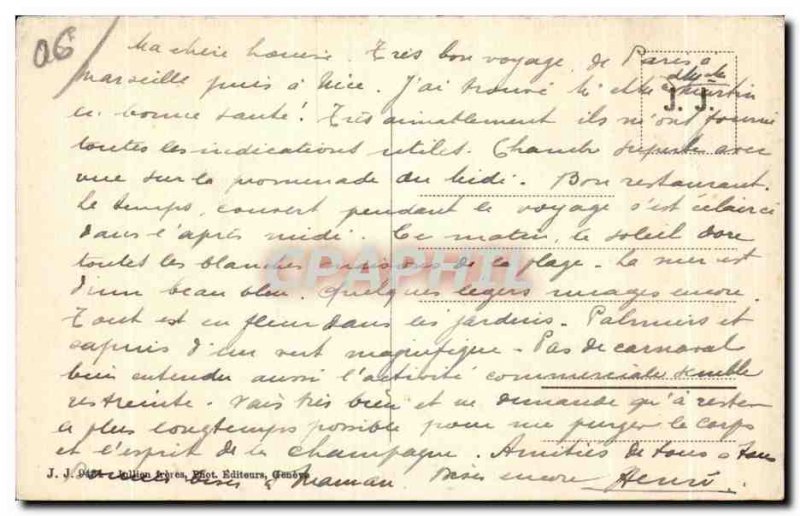 06
Ma chère Louise. Très bon voyage, de Paris à
Marseille puis à Nice. J'ai trouvé M. et Mme Martin
J. J.
en bonne santé! Très aimablement ils m'ont fourni
toutes les indications utiles. Chambre superbe avec
vue sur la promenade du Midi. Bon restaurant.
Le temps, couvert pendant le voyage s'est éclairci
dans l'après midi. Ce matin, le soleil dore
toutes les blanches maisons de la plage. La mer est
d'un beau bleu. Quelques légers nuages encore.
Tout est en fleur dans les jardins. Palmiers et
sapins d'un vert magnifique. Pas de carnaval
bien entendu aussi l'activité commerciale semble
restreinte. Vais très bien et ne demande qu'à rester
le plus longtemps possible pour me purger le corps
et l'esprit de la champagne. Amitiés de tous à tous
J. J. Jullien frères, Phot. Editeurs, Genève
Bises à Maman. Bises encore Henri.
CPAPHIL